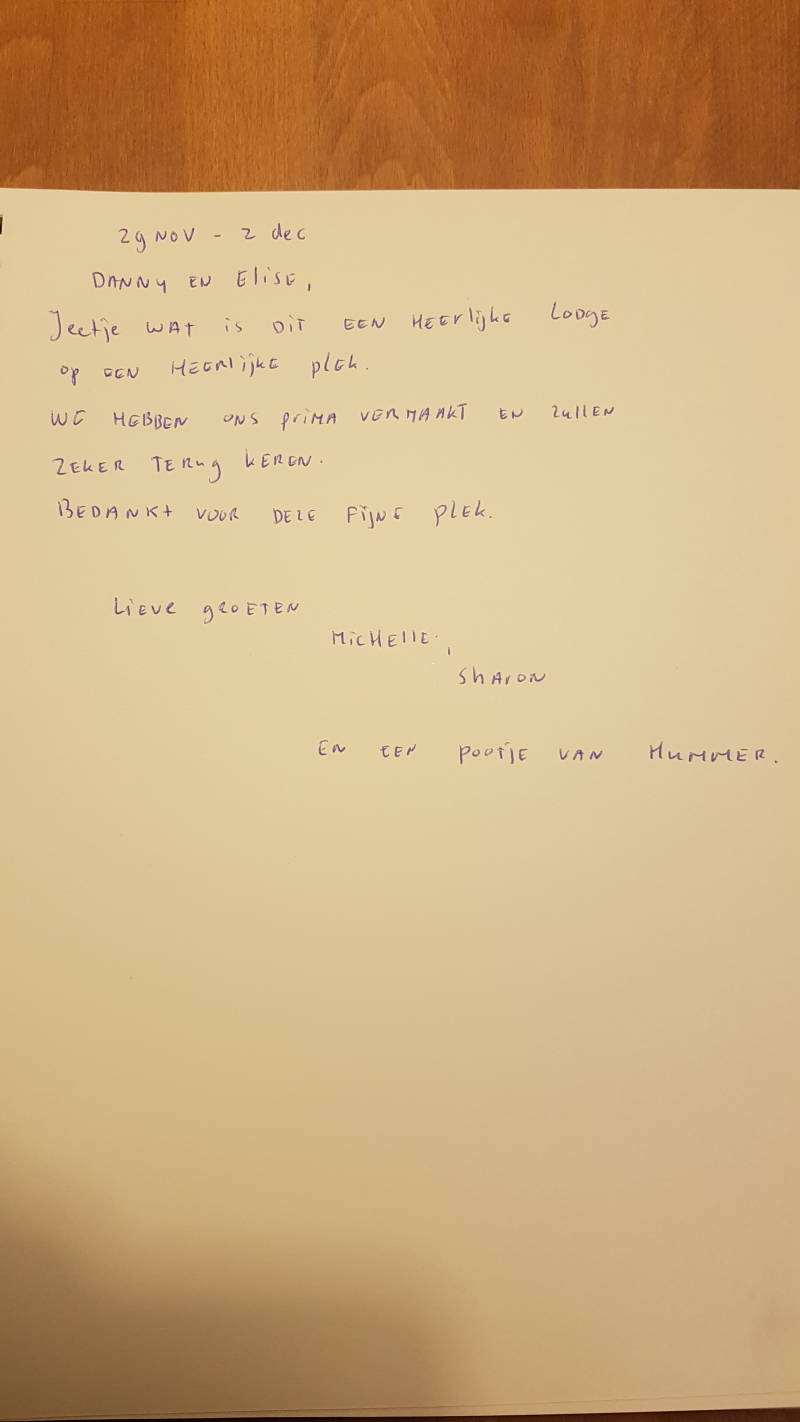 29 NOV - 2 dec
DANNY EN ElisE,
Jeetje WAt is Dit EEN HEErlijkE LODGE
op EEN HEErlijkE plEk.
WE HEBBEN ONS priMA VERMAAKT EN zullEN
ZEKER TERug kEREN.
BEDANKt VOOR DEZE FijNE plEk.
LiEVE gROETEN
MiCHEllE.,
ShAroN
EN EEN pootjE VAN HuMMER.